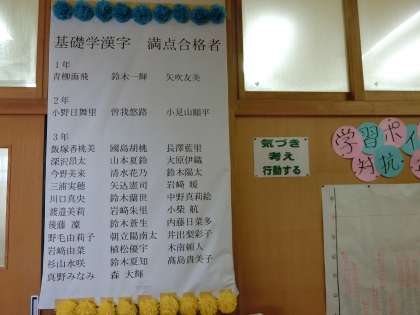 基礎学漢字　満点合格者
1年
青柳海飛　鈴木一輝　矢吹友美
2年
小野日舞里　曽我悠路　小見山順平
3年
飯塚香桃美　國島胡桃　長澤藍里
深沢昂太　山本夏鈴　大原伊織
今野美来　清水花乃　鈴木陽太
三浦実穂　矢込憲司　岩崎　暖
川口真央　鈴木蘭世　中野真莉絵
渡邉美莉　岩崎朱里　小柴　航
後藤　凜　鈴木蒼生　内藤日菜多
野毛由莉子　朝立陽南太　芹出梨彩子
岩崎由菜　植松優宇　木南頼人
杉山水咲　鈴木夏知　髙島貴美子
真野みなみ　森　大輝
気づき
考え
行動する
学習ポイ
対抗